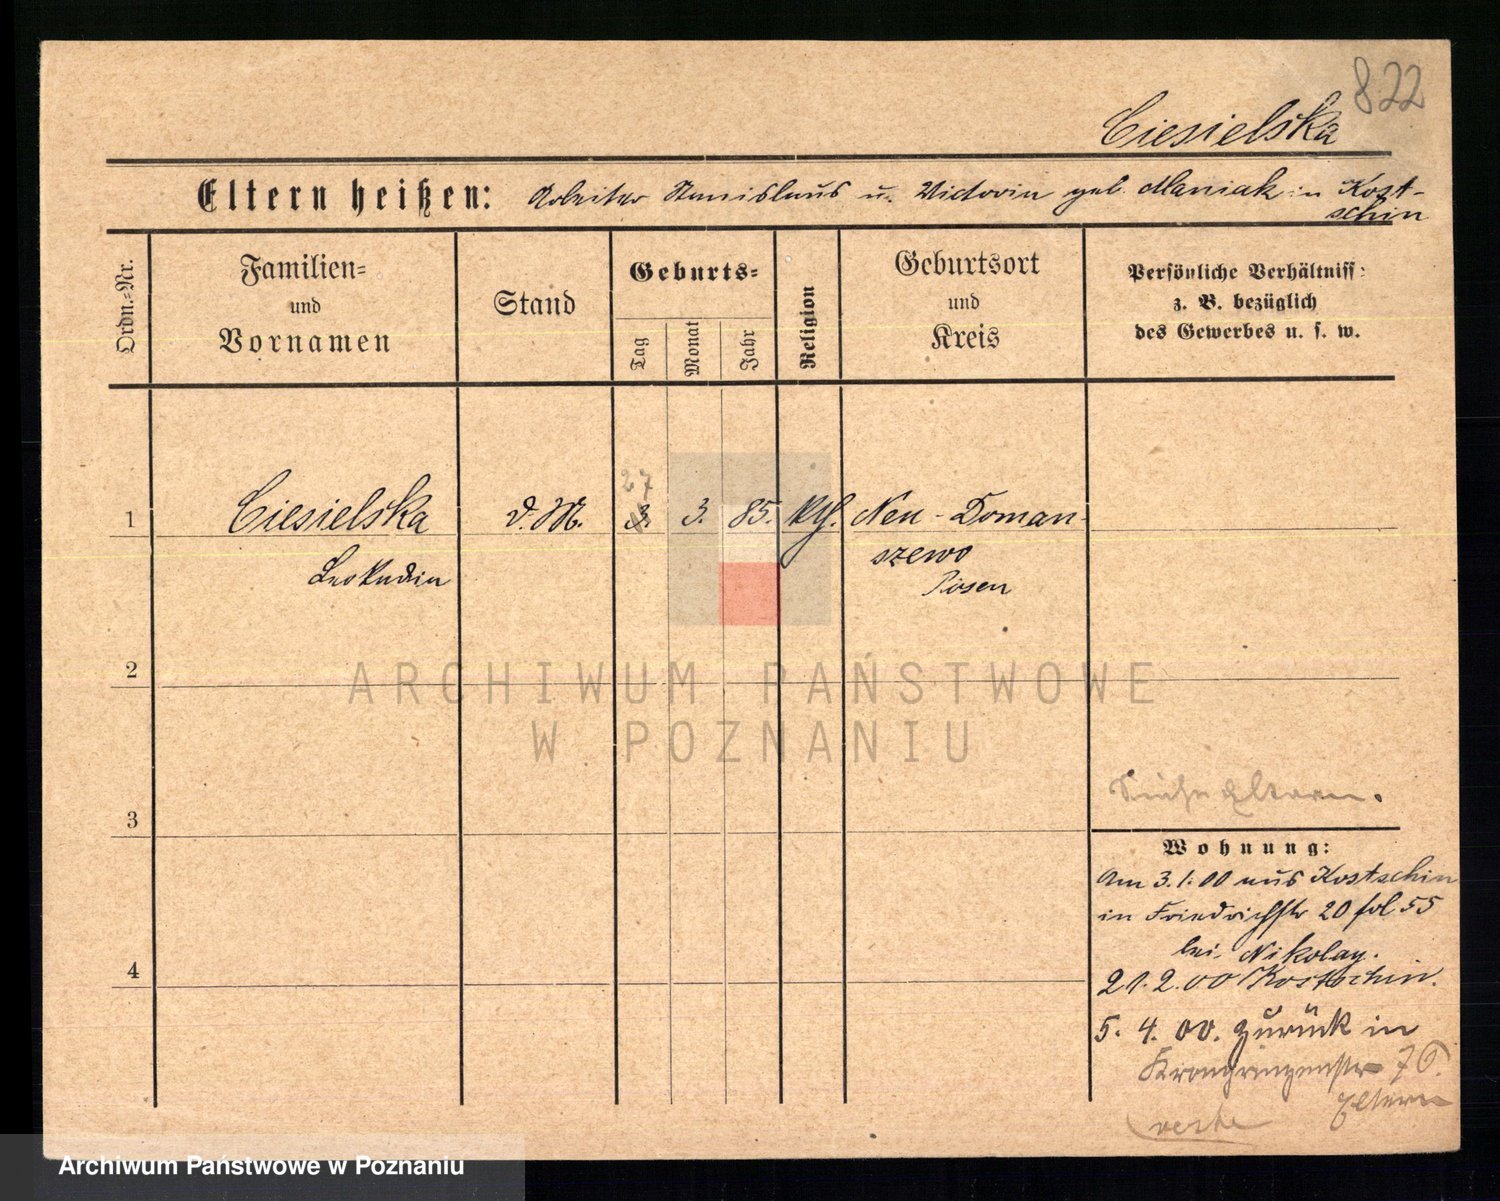 822
Ciesielska
Eltern heißen: Arbeiter Stanislaus u. Victoria geb. Maniak in Kost-
schin
Ordn.-Nr.
Familien-
und
Vornamen
Stand
Geburts-
Tag
Monat
Jahr
Religion
Geburtsort
und
Kreis
Persönliche Verhältniss
z. B. bezüglich
des Gewerbes u. s. w.
27
1 Ciesielska d. M. 3. 85. kth. Neu-Doman-
Leokadia szewo
Posen
2
3
4
Siehe Eltern.
Wohnung:
Am 3.1.00 aus Kostschin
in Friedrichstr 20 fol 55
bei Nikolay.
21.2.00 Kostschin.
5. 4. 00. zurück in
Kronprinzenstr 76.
Eltern
ARCHIWUM PAŃSTWOWE
W POZNANIU
Archiwum Państwowe w Poznaniu